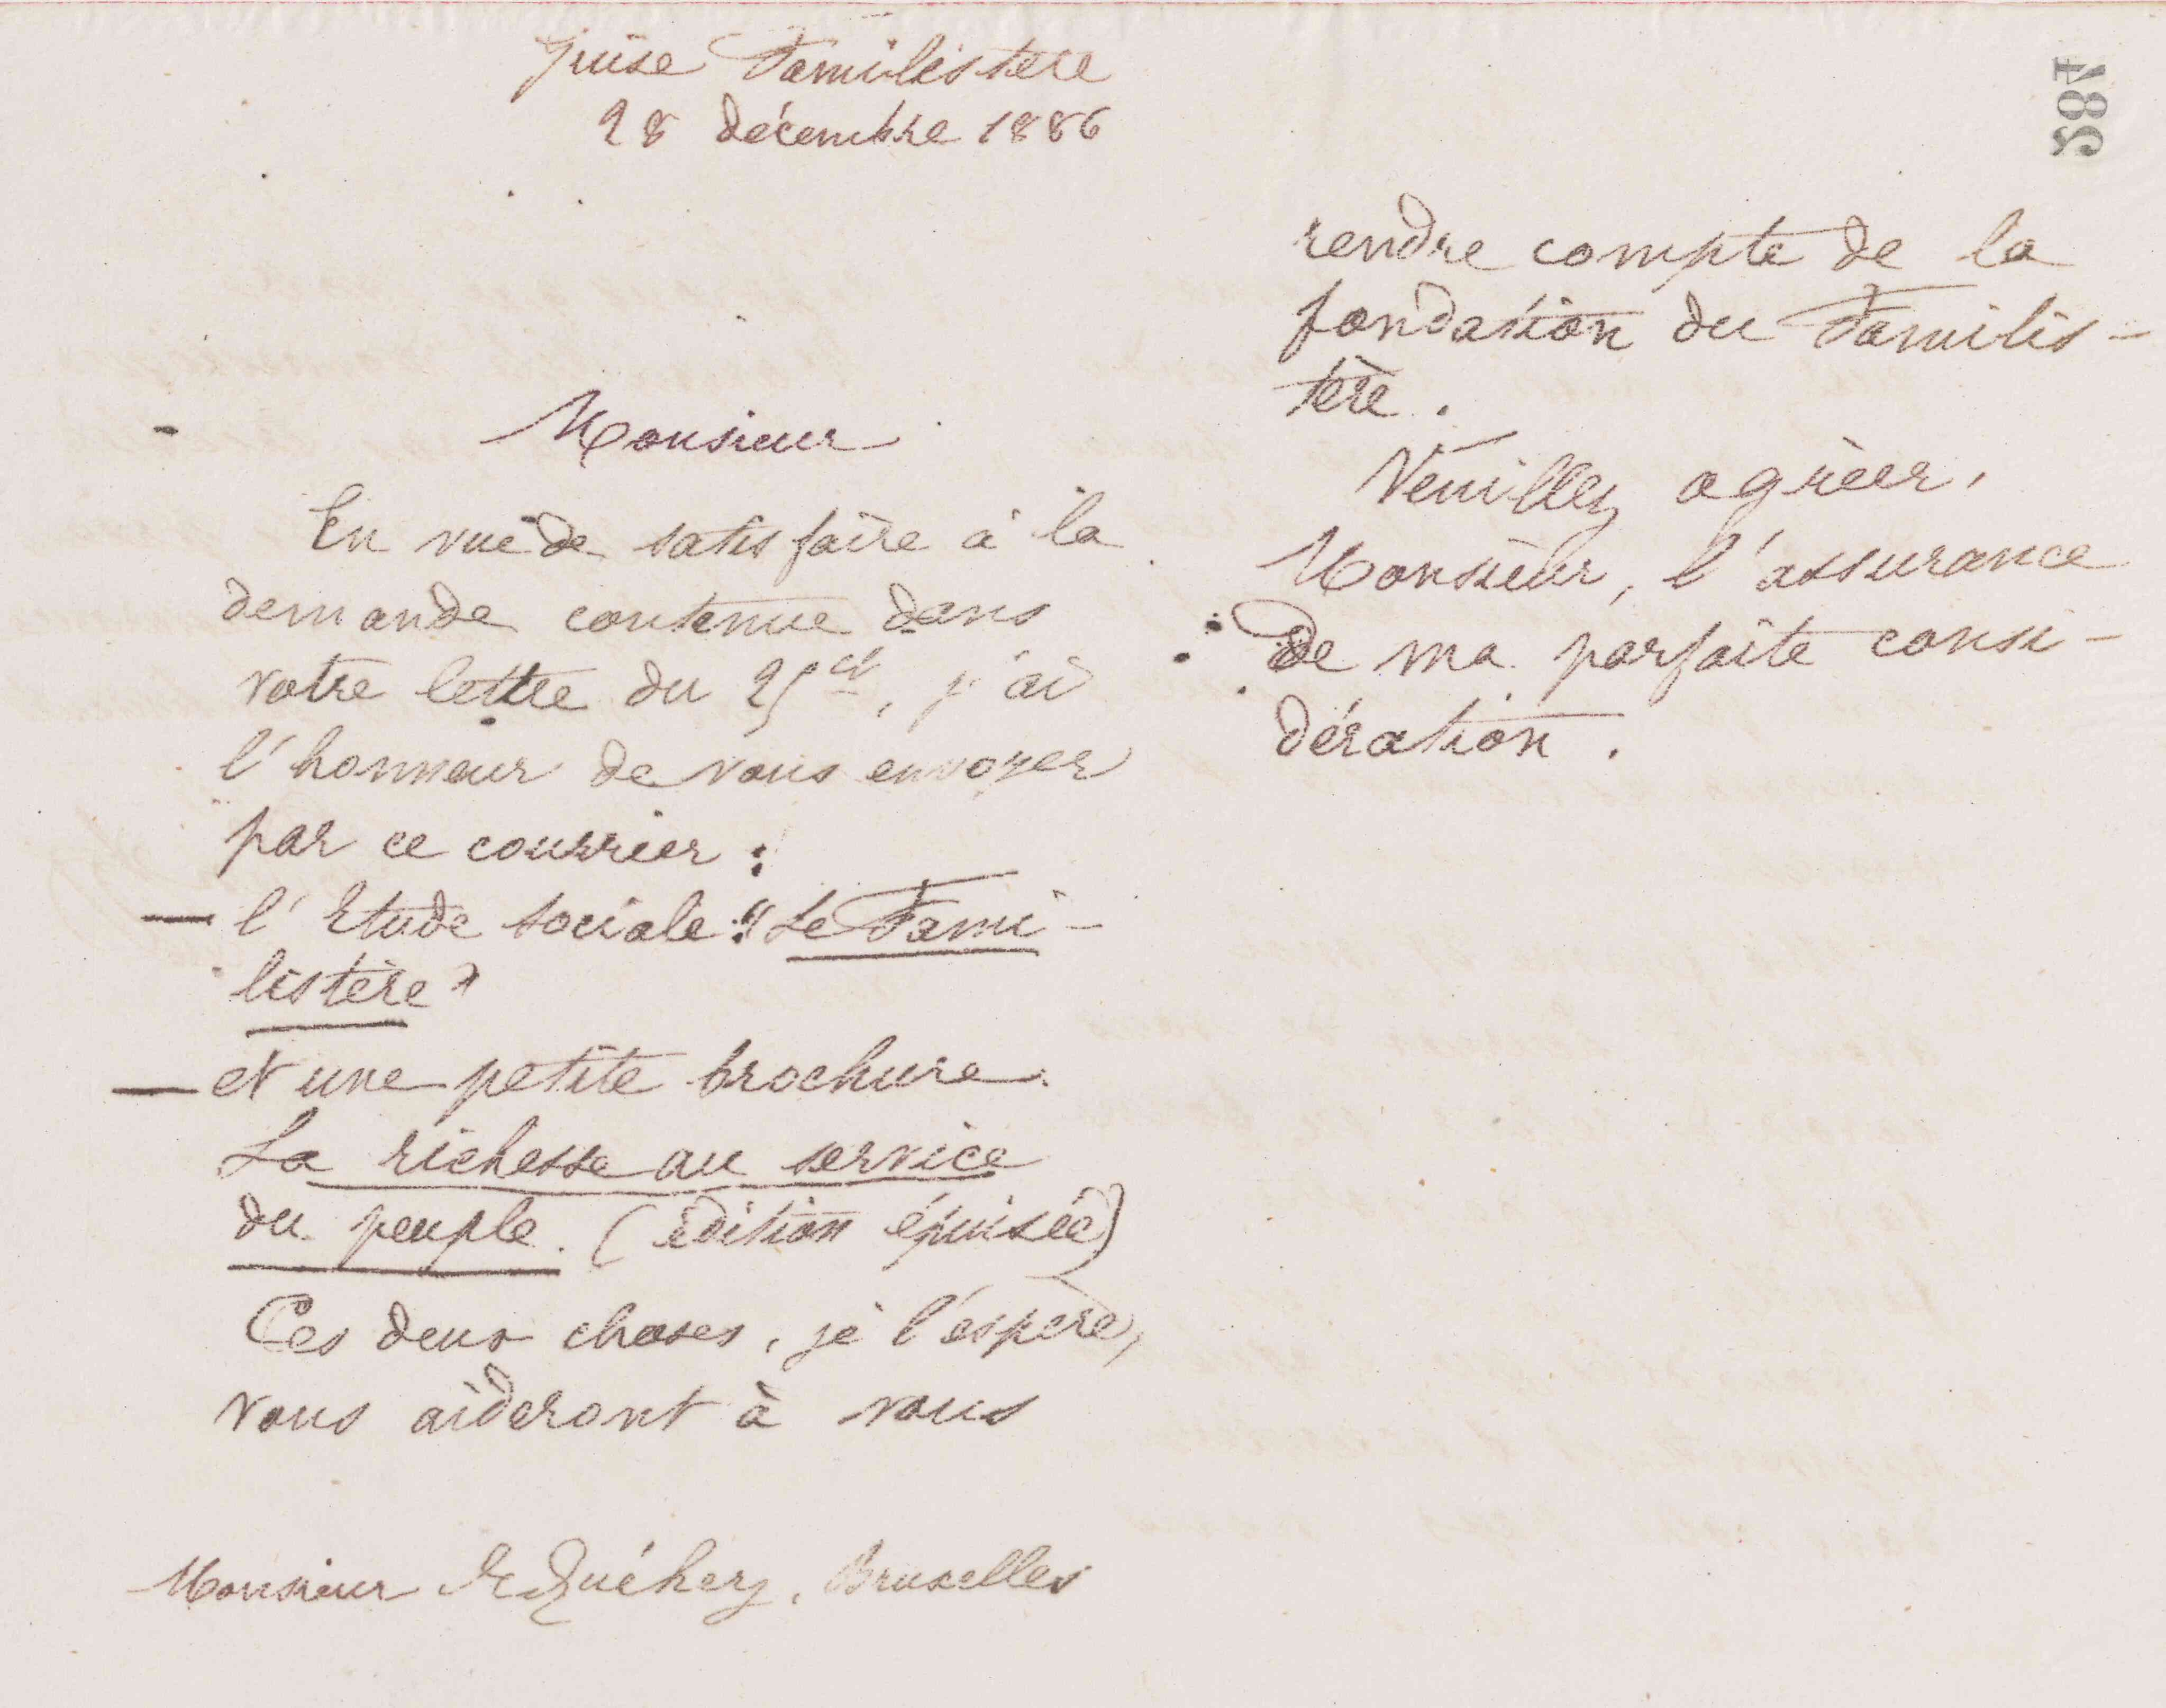 Guise Familistère
28 décembre 1886
Monsieur
En vue de satisfaire à la
demande contenue dans
votre lettre du 25 ct, j'ai
l'honneur de vous envoyer
par ce courrier :
— l'Etude sociale : "Le Fami-
listère"
— et une petite brochure
La richesse au service
du peuple. (édition épuisée)
Ces deux choses, je l'espère,
vous aideront à vous
Monsieur Bruxelles
rendre compte de la
fondation du Familis-
tère.
Veuillez agréer,
Monsieur, l'assurance
de ma parfaite consi-
dération.